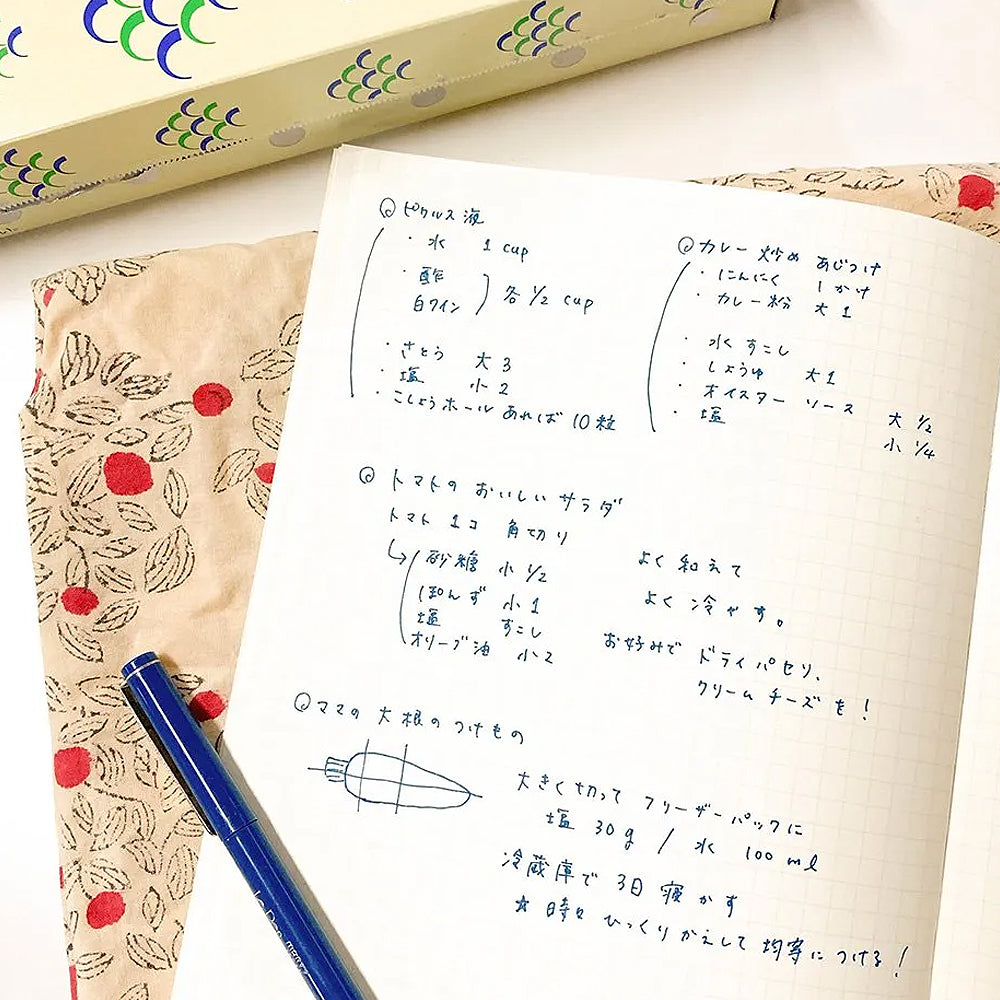 ピクルス液
・水 1 cup
・酢
白ワイン
各 1/2 cup
・さとう 大 3
・塩 小 2
・こしょうホール あれば 10粒
カレー炒め あじつけ
・にんにく 1かけ
・カレー粉 大 1
・水 すこし
・しょうゆ 大 1
・オイスターソース 大 1/2
・塩 小 1/4
トマトの おいしい サラダ
トマト 1コ 角切り
砂糖 小 1/2
ぽんず 小 1
塩 すこし
オリーブ油 小 2
よく 和えて
よく 冷やす。
お好みで ドライパセリ、
クリームチーズも!
ママの 大根の つけもの
大きく切って フリーザーパックに
塩 30g / 水 100ml
冷蔵庫で 3日 寝かす
☆ 時々 ひっくりかえして 均等に つける!
Le Pen